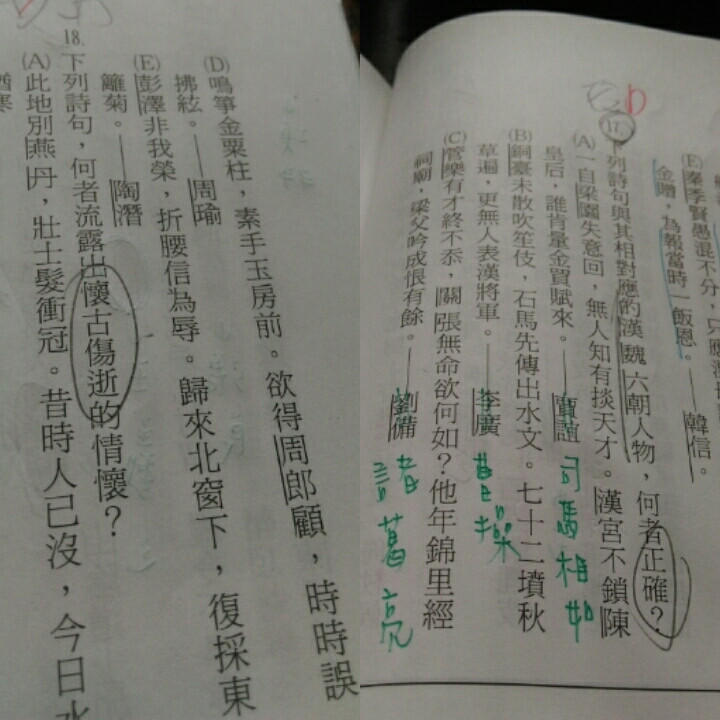 (E)秦季賢愚混不分,只應
金贈,為報當時一飯恩。——韓信。
17.下列詩句與其相對應的漢 魏 六朝人物,何者正確?
(A)一自梁園失意回,無人知有掞天才。漢宮不鎖陳
皇后,誰肯量金買賦來。——賈誼 司馬相如
(B)銅臺未散吹笙伎,石馬先傳出水文。七十二墳秋
草遍,更無人表漢將軍。——李廣 曹操
(C)管樂有才終不忝,關張無命欲何如?他年錦里經
祠廟,梁父吟成恨有餘。——劉備 諸葛亮
(D)鳴箏金粟柱,素手玉房前。欲得周郎顧,時時誤
拂絃。——周瑜
(E)彭澤非我榮,折腰信為辱。歸來北窗下,復採東
籬菊。——陶潛
18.下列詩句,何者流露出懷古傷逝的情懷?
(A)此地別燕丹,壯士髮衝冠。昔時人已沒,今日水
猶寒